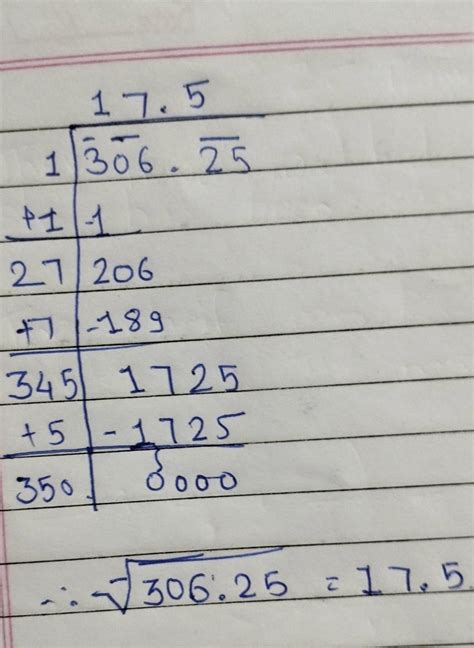 17.5
1 306.25
+1 -1
27 206
+7 -189
345 1725
+5 -1725
350 0000
∴ √306.25 = 17.5